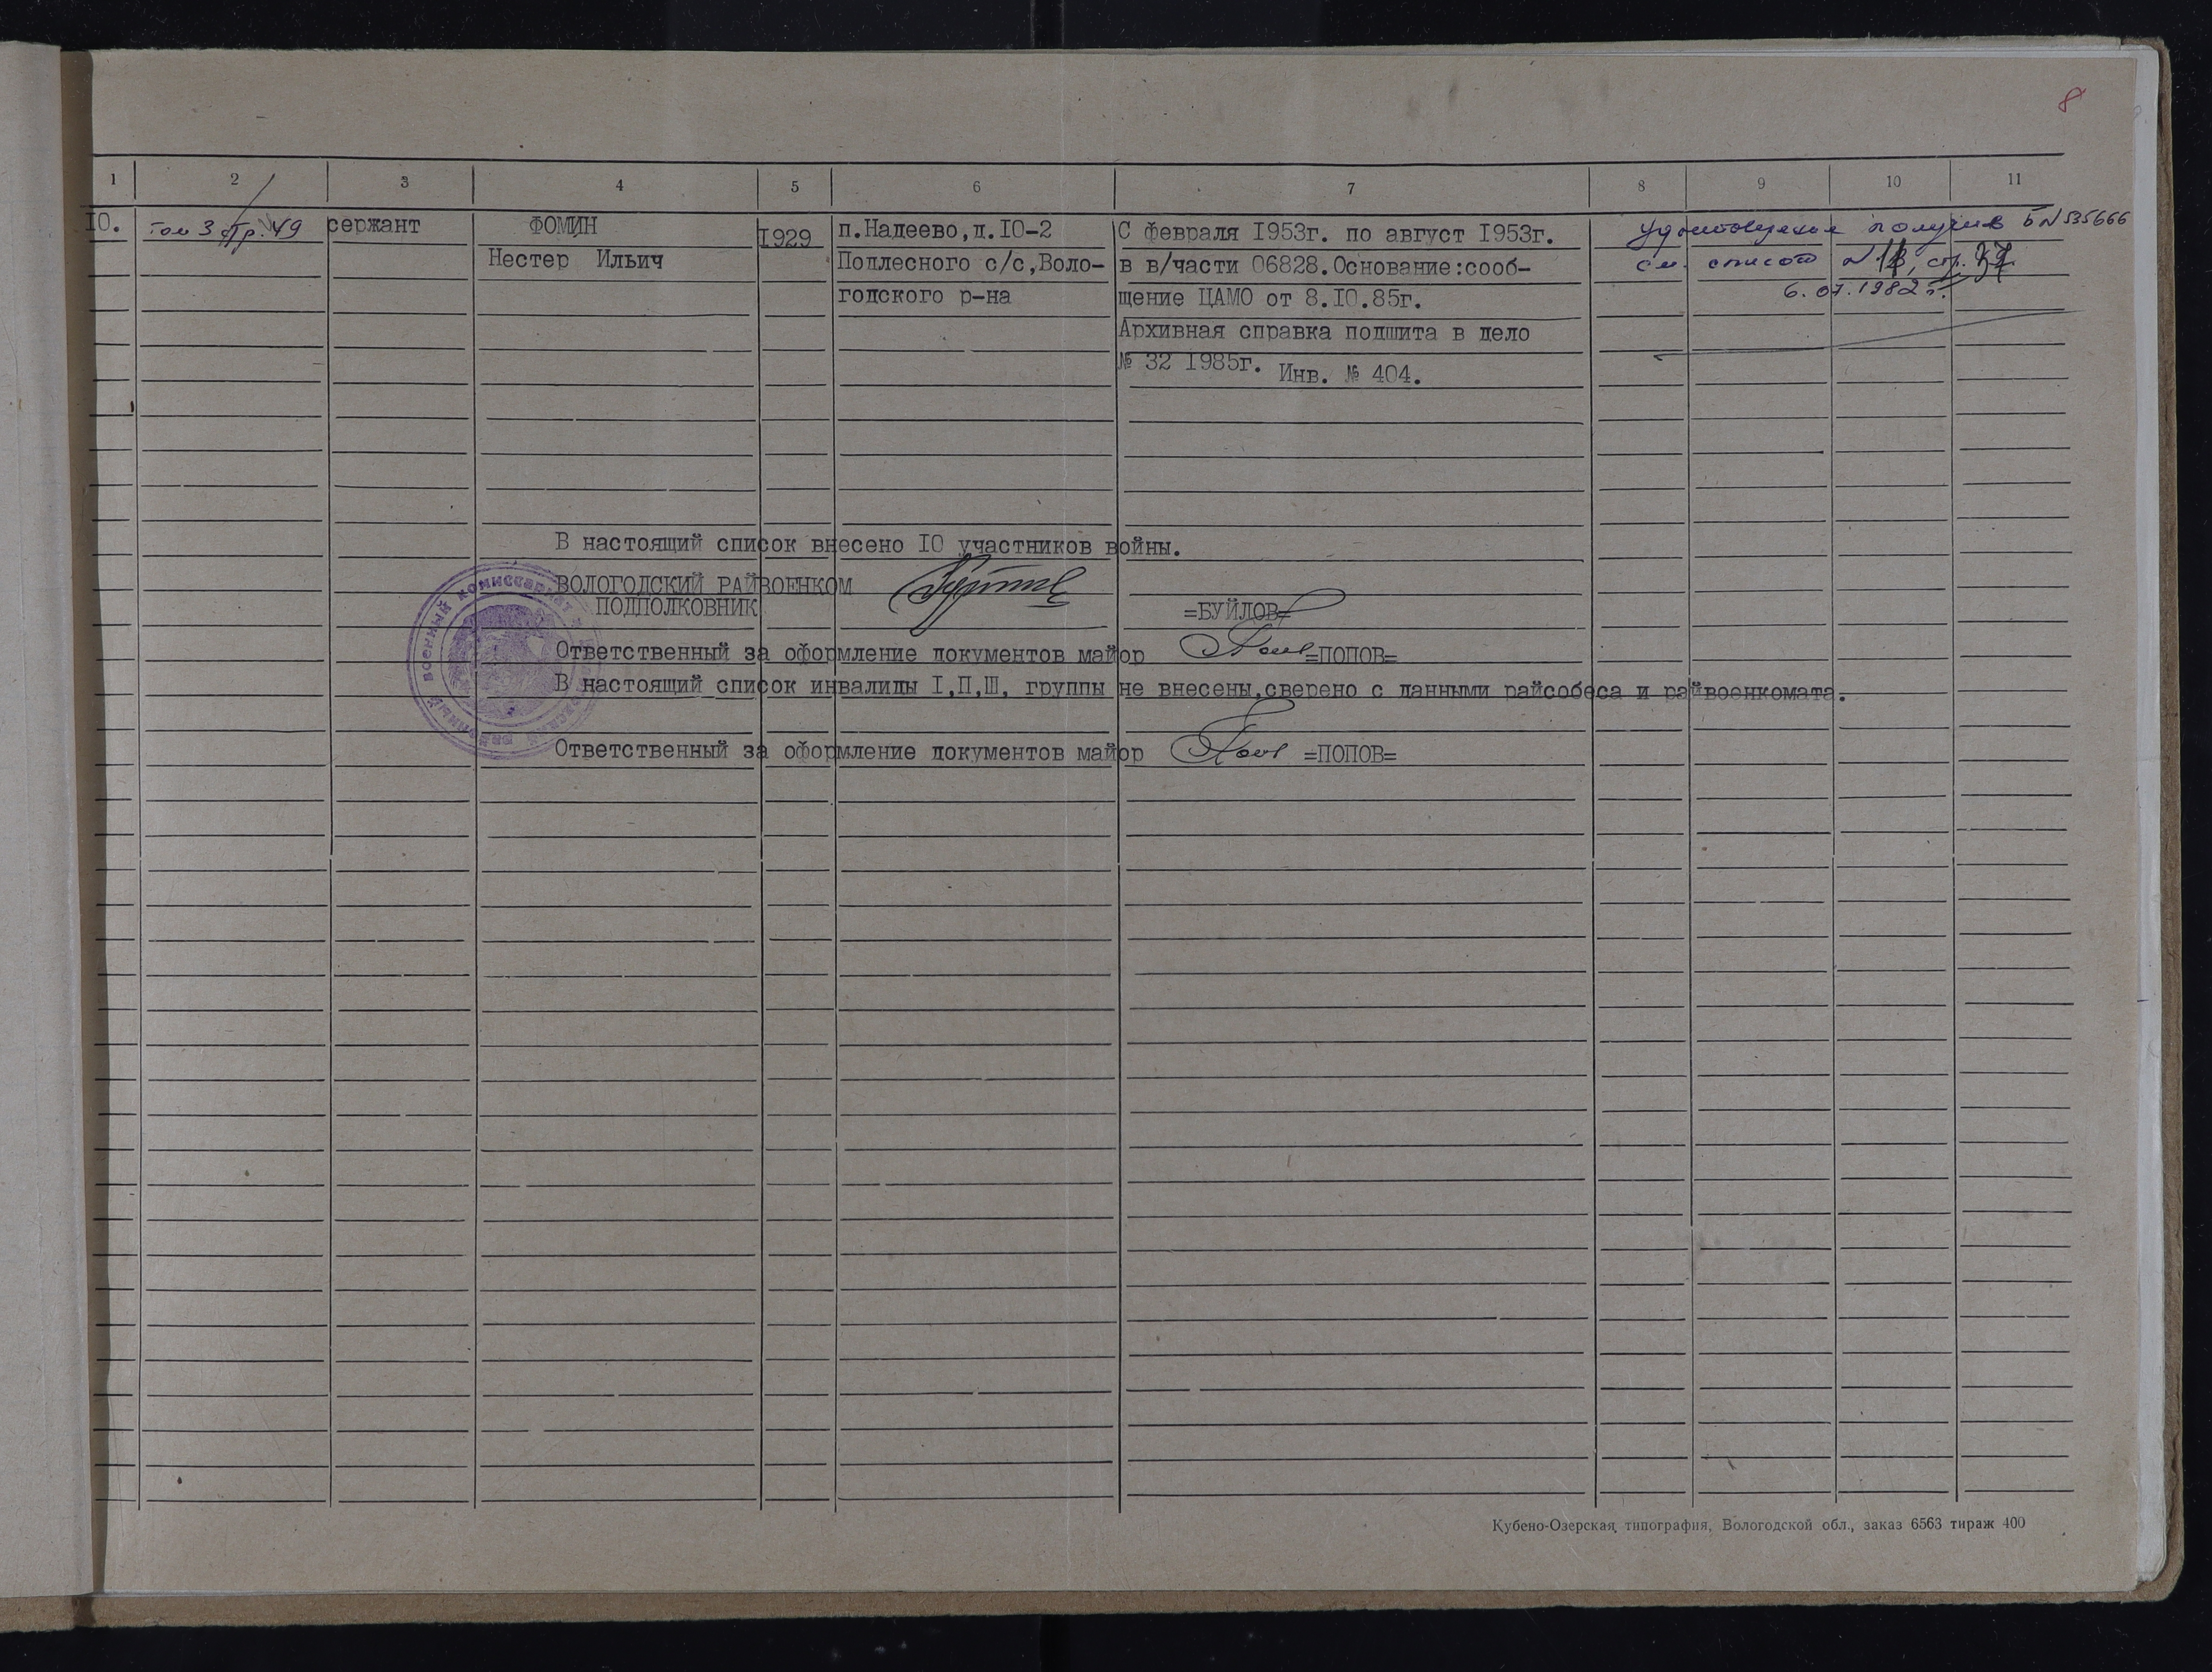 8
1 2 3 4 5 6 7 8 9 10 11
IO. том 3 стр. 49 сержант ФОМИН 1929 п.Надеево,д.IO-2 С февраля I953г. по август I953г. удостоверение получив Б N 535666
Нестер Ильич Подлесного с/с,Воло- в в/части 06828.Основание:сооб- см. список N 18, стр.
годского р-на щение ЦАМО от 8.IO.85г. 6.07.1982 г.
Архивная справка подшита в дело
№ 32 I985г. Инв. № 404.
В настоящий список внесено IO участников войны.
ВОЛОГОДСКИЙ РАЙВОЕНКОМ
ПОДПОЛКОВНИК =БУЙЛОВ=
Ответственный за оформление документов майор =ПОПОВ=
В настоящий список инвалиды I,П,Ш, группы не внесены,сверено с данными райсобеса и райвоенкомата.
Ответственный за оформление документов майор =ПОПОВ=
военный комиссариат
Кубено-Озерская типография, Вологодской обл., заказ 6563 тираж 400